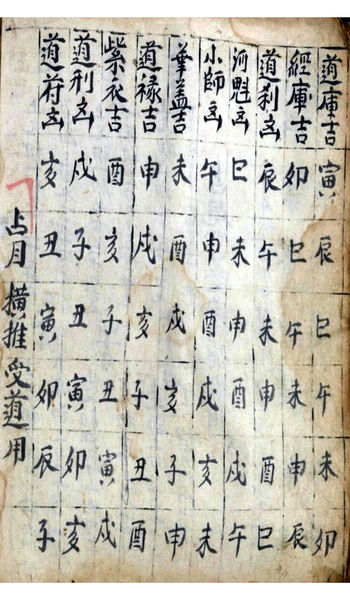 道庫吉寅辰巳午未卯
經庫吉卯巳午未申辰
道刹凶辰午未申酉巳
河魁凶巳未申酉戌午
小師凶午申酉戌亥未
華蓋吉未酉戌亥子申
道祿吉申戌亥子丑酉
紫衣吉酉亥子丑寅戌
道刑凶戌子丑寅卯亥
道符凶亥丑寅卯辰子
占月橫推受道用